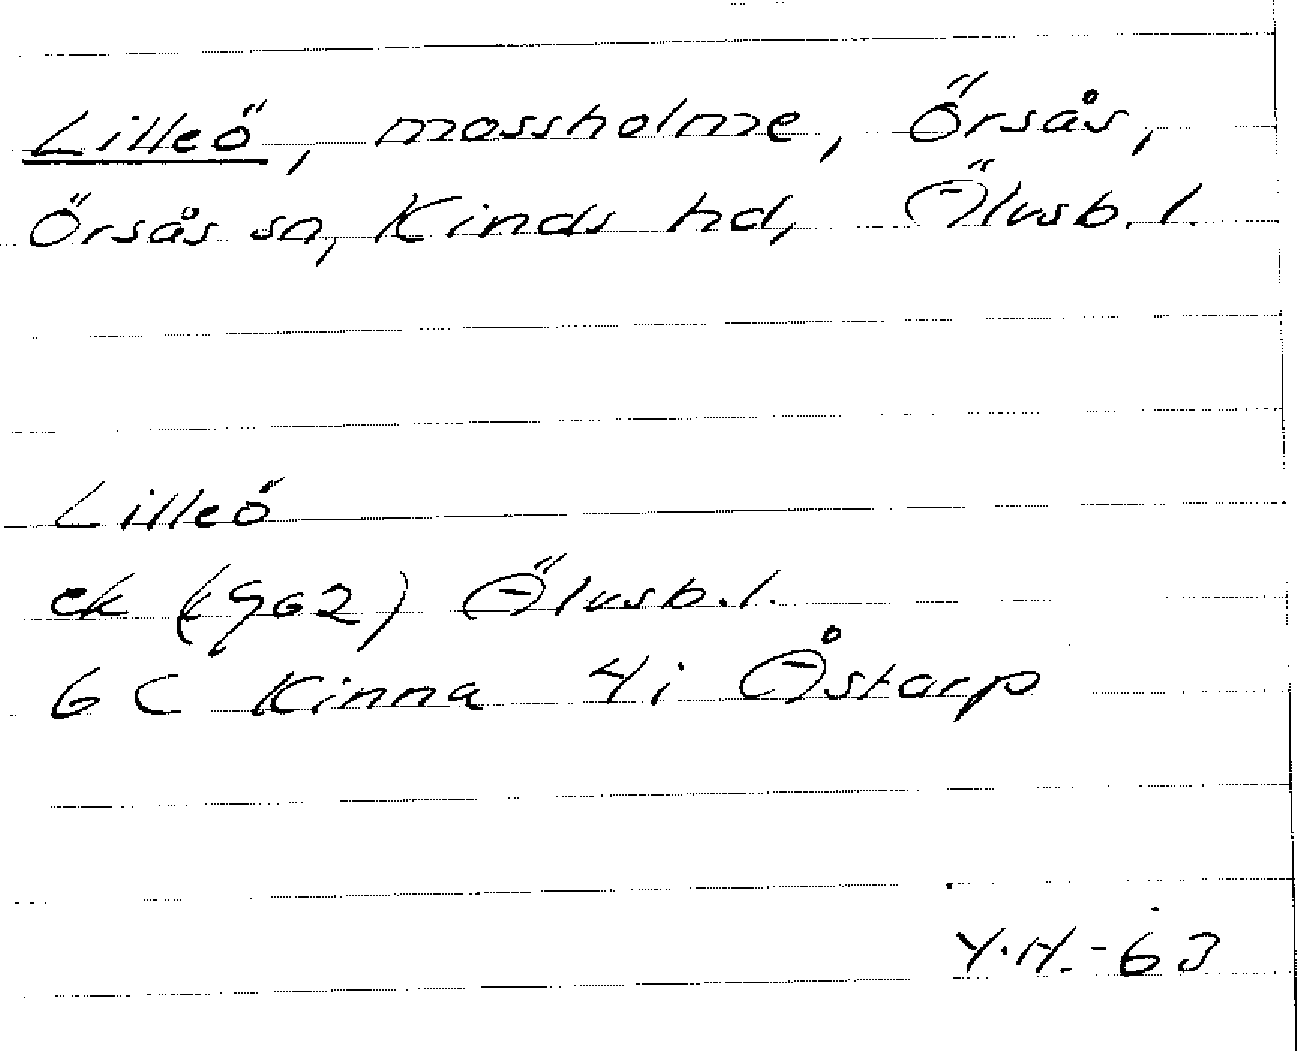 Lilleö, mossholme, Örsås,
Örsås sn, Kinds hd, Älvsb. l.
Lilleö
ek (1962) Älvsb. l.
6 C Kinna 4i Åstarp
Y.H.-63